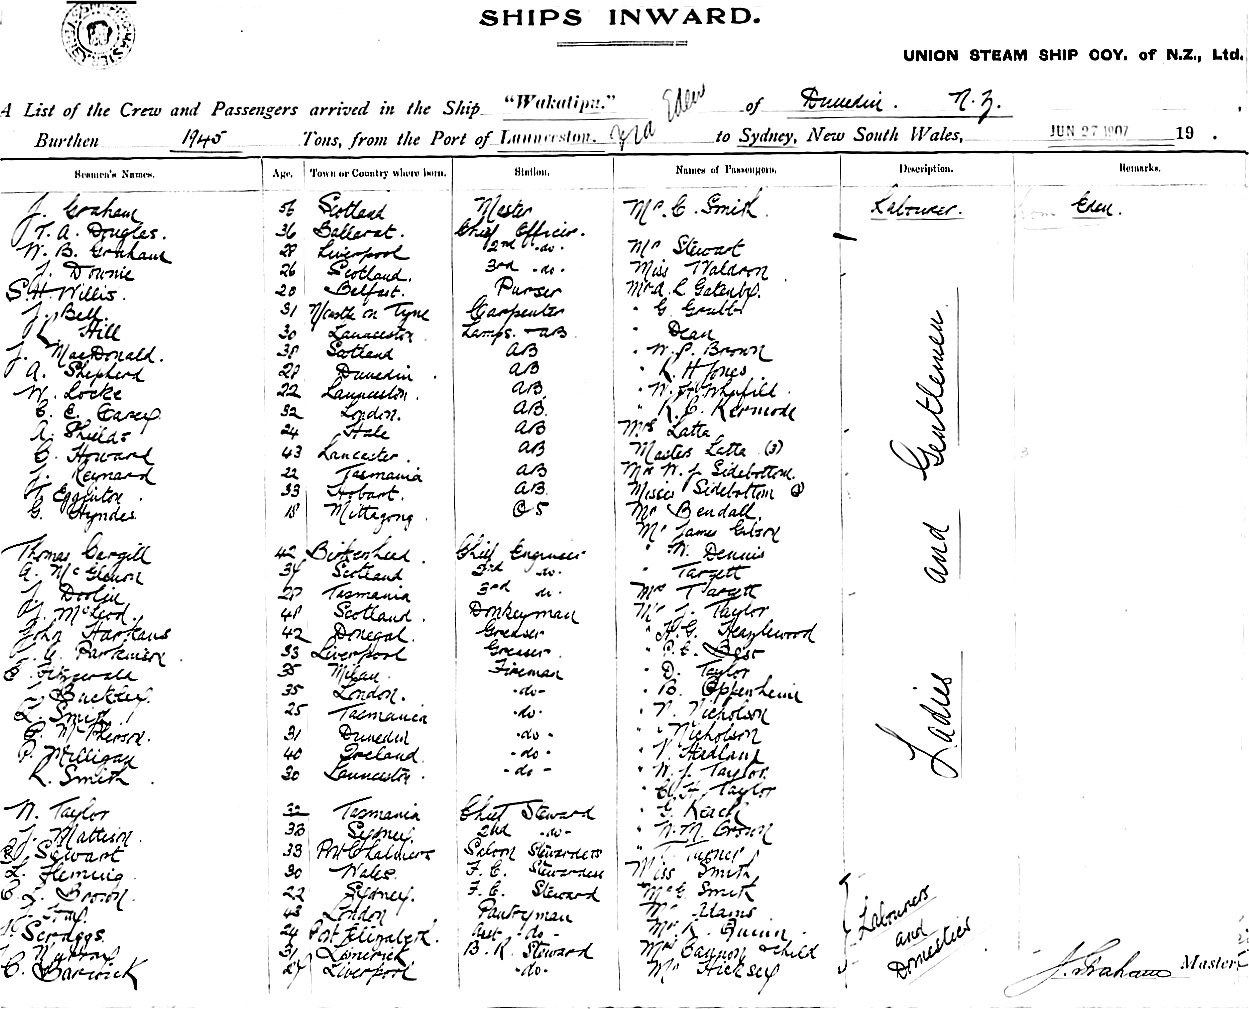 SHIPS INWARD.
UNION STEAM SHIP COY. of N.Z., Ltd.
A List of the Crew and Passengers arrived in the Ship "Wakatipu." of Dunedin. N.Z.
Burthen 1945 Tons, from the Port of Launceston. via Eden to Sydney, New South Wales, JUN 27 1907 19 .
Seamen's Names. Age. Town or Country where born. Station. Names of Passengers. Description. Remarks.
J. Graham 56 Scotland Master Mr. C. Smith Labourer. from Eden.
T. A. Douglas. 36 Ballarat. Chief Officer.
W. B. Graham 29 Liverpool 2nd -do- Mr Stewart
J. Downie 26 Scotland. 3rd -do- Miss Waldron
S. H. Willis. 20 Belfast. Purser Mr A. L Gatenby.
J. Bell. 31 Carpenter " G. Grubb
Hill 30 Launceston Lamps - AB " Dean
J. MacDonald. 38 Scotland AB " W. P. Brown
A. Shepherd 29 Dunedin. AB " K. H Jones
W. Locke 22 Launceston. AB
C. E. Carey. 32 London. AB " R. C. Kermode
A. Shields 24 AB Mrs Latta
C. Howard 43 Lancaster. AB Masters Latta (3)
J. Reynard 22 Tasmania AB Mr W. J. Sidebottom
Egglinton. 33 Hobart. AB Misses Sidebottom
G. Hyndes 18 Mittagong. OS Mr Bendall.
Mr James Gibson
Thomas Cargill 42 Birkenhead. Chief Engineer " W. Dennis
34 Scotland 3rd do. " Targett
J. Doolin 29 Tasmania 3rd do. Mrs Targett
J. McLeod. 48 Scotland. Donkeyman Mr J. Taylor
John Harkins 42 Donegal. Greaser " H. G. Heazlewood
33 Liverpool Greaser. " P. C. Best
35 Milan. Fireman " D. Taylor
J. Buckley. 35 London. -do- " B. Oppenheim
L. Smith. 25 Tasmania -do- " N. Nicholson
McPherson. 31 Dunedin -do- " Nicholson
P. Milligan 40 Ireland. -do- " V. Hedland
K. Smith. 30 Launceston. -do- " W. J. Taylor
Taylor
N. Taylor 32 Tasmania Chief Steward " G. Keach
J. Mattison. 38 Sydney. 2nd -do- " N. M. Brown
Stewart 33 Port Chalmers Saloon Stewardess " Turner
L. Fleming. 30 Wales. F. C. Stewardess Miss Smith
C. J. Brown. 22 Sydney. F. C. Steward Mr E. Smith
43 London Pantryman Mr Adams
Scroggs. 24 Port Elizabeth. Asst -do- Mr K. Quinn
Murray 31 Limerick B. R. Steward Mrs Cannon & Child
C. Barwick 27 Liverpool -do- Mr Hicksey
Ladies and Gentlemen
Labourers
and
Domestics
J. Graham Master